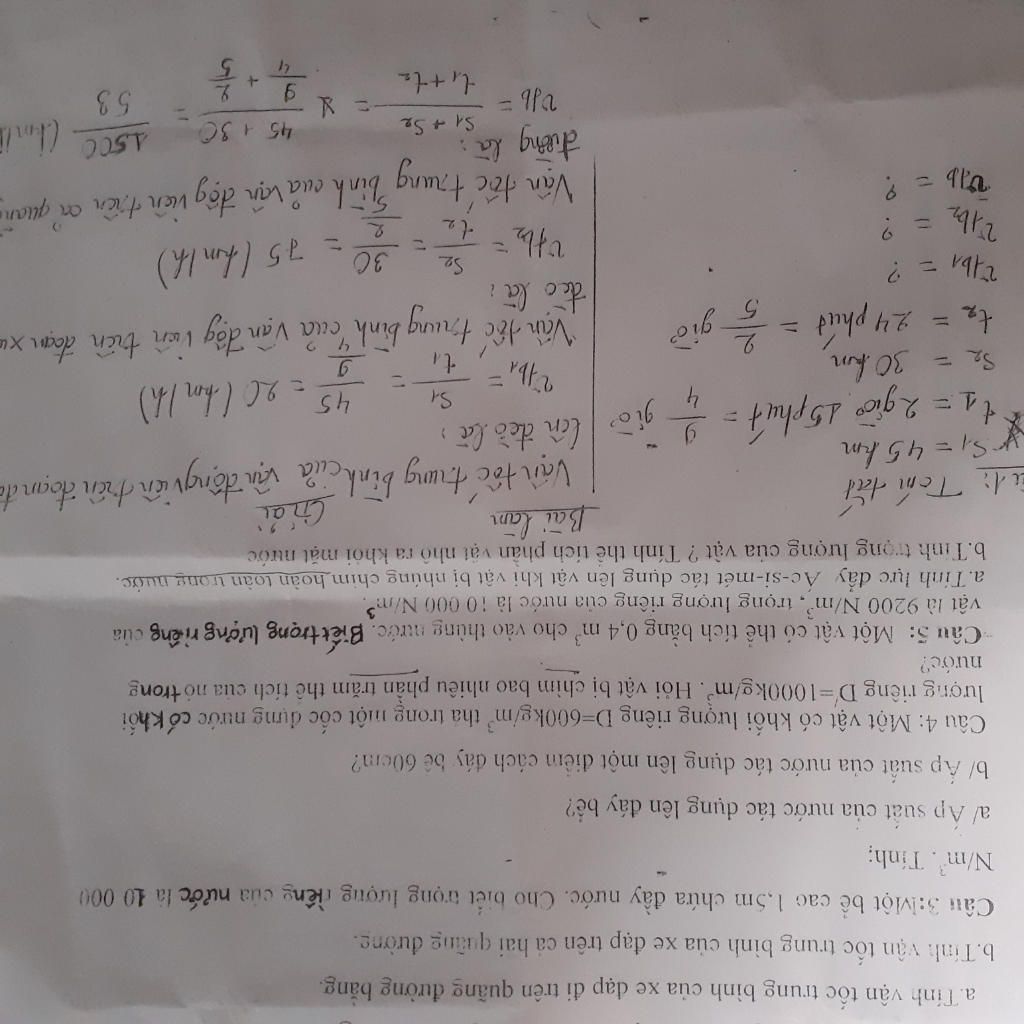 a.Tính vận tốc trung bình của xe đạp đi trên quãng đường bằng.
b.Tính vận tốc trung bình của xe đạp trên cả hai quãng đường.
Câu 3:Một bể cao 1,5m chứa đầy nước. Cho biết trọng lượng riêng của nước là 10 000
N/m³. Tính:
a/ Áp suất của nước tác dụng lên đáy bể?
b/ Áp suất của nước tác dụng lên một điểm cách đáy bể 60cm?
Câu 4: Một vật có khối lượng riêng D=600kg/m³ thả trong một cốc đựng nước có khối
lượng riêng D'=1000kg/m³. Hỏi vật bị chìm bao nhiêu phần trăm thể tích của nó trong
nước?
Câu 5: Một vật có thể tích bằng 0,4 m³ cho vào thùng nước. Biết trọng lượng riêng của
vật là 9200 N/m³, trọng lượng riêng của nước là 10 000 N/m³.
a.Tính lực đẩy Ác-si-mét tác dụng lên vật khi vật bị nhúng chìm hoàn toàn trong nước.
b.Tính trọng lượng của vật ? Tính thể tích phần vật nhô ra khỏi mặt nước
Bài làm
Tóm tắt
S1 = 45 km
t1 = 2 giờ 15 phút = 9/4 giờ
S2 = 30 km
t2 = 24 phút = 2/5 giờ
vtb1 = ?
vtb2 = ?
vtb = ?
Giải
Vận tốc trung bình của vận động viên trên đoạn
lên đèo là :
vtb1 = S1/t1 = 45/(9/4) = 20 (km/h)
Vận tốc trung bình của vận động viên trên đoạn
đèo là :
vtb2 = S2/t2 = 30/(2/5) = 75 (km/h)
Vận tốc trung bình của vận động viên trên cả
đường là :
vtb = (S1 + S2)/(t1 + t2) = (45 + 30)/(9/4 + 2/5) = 1500/53